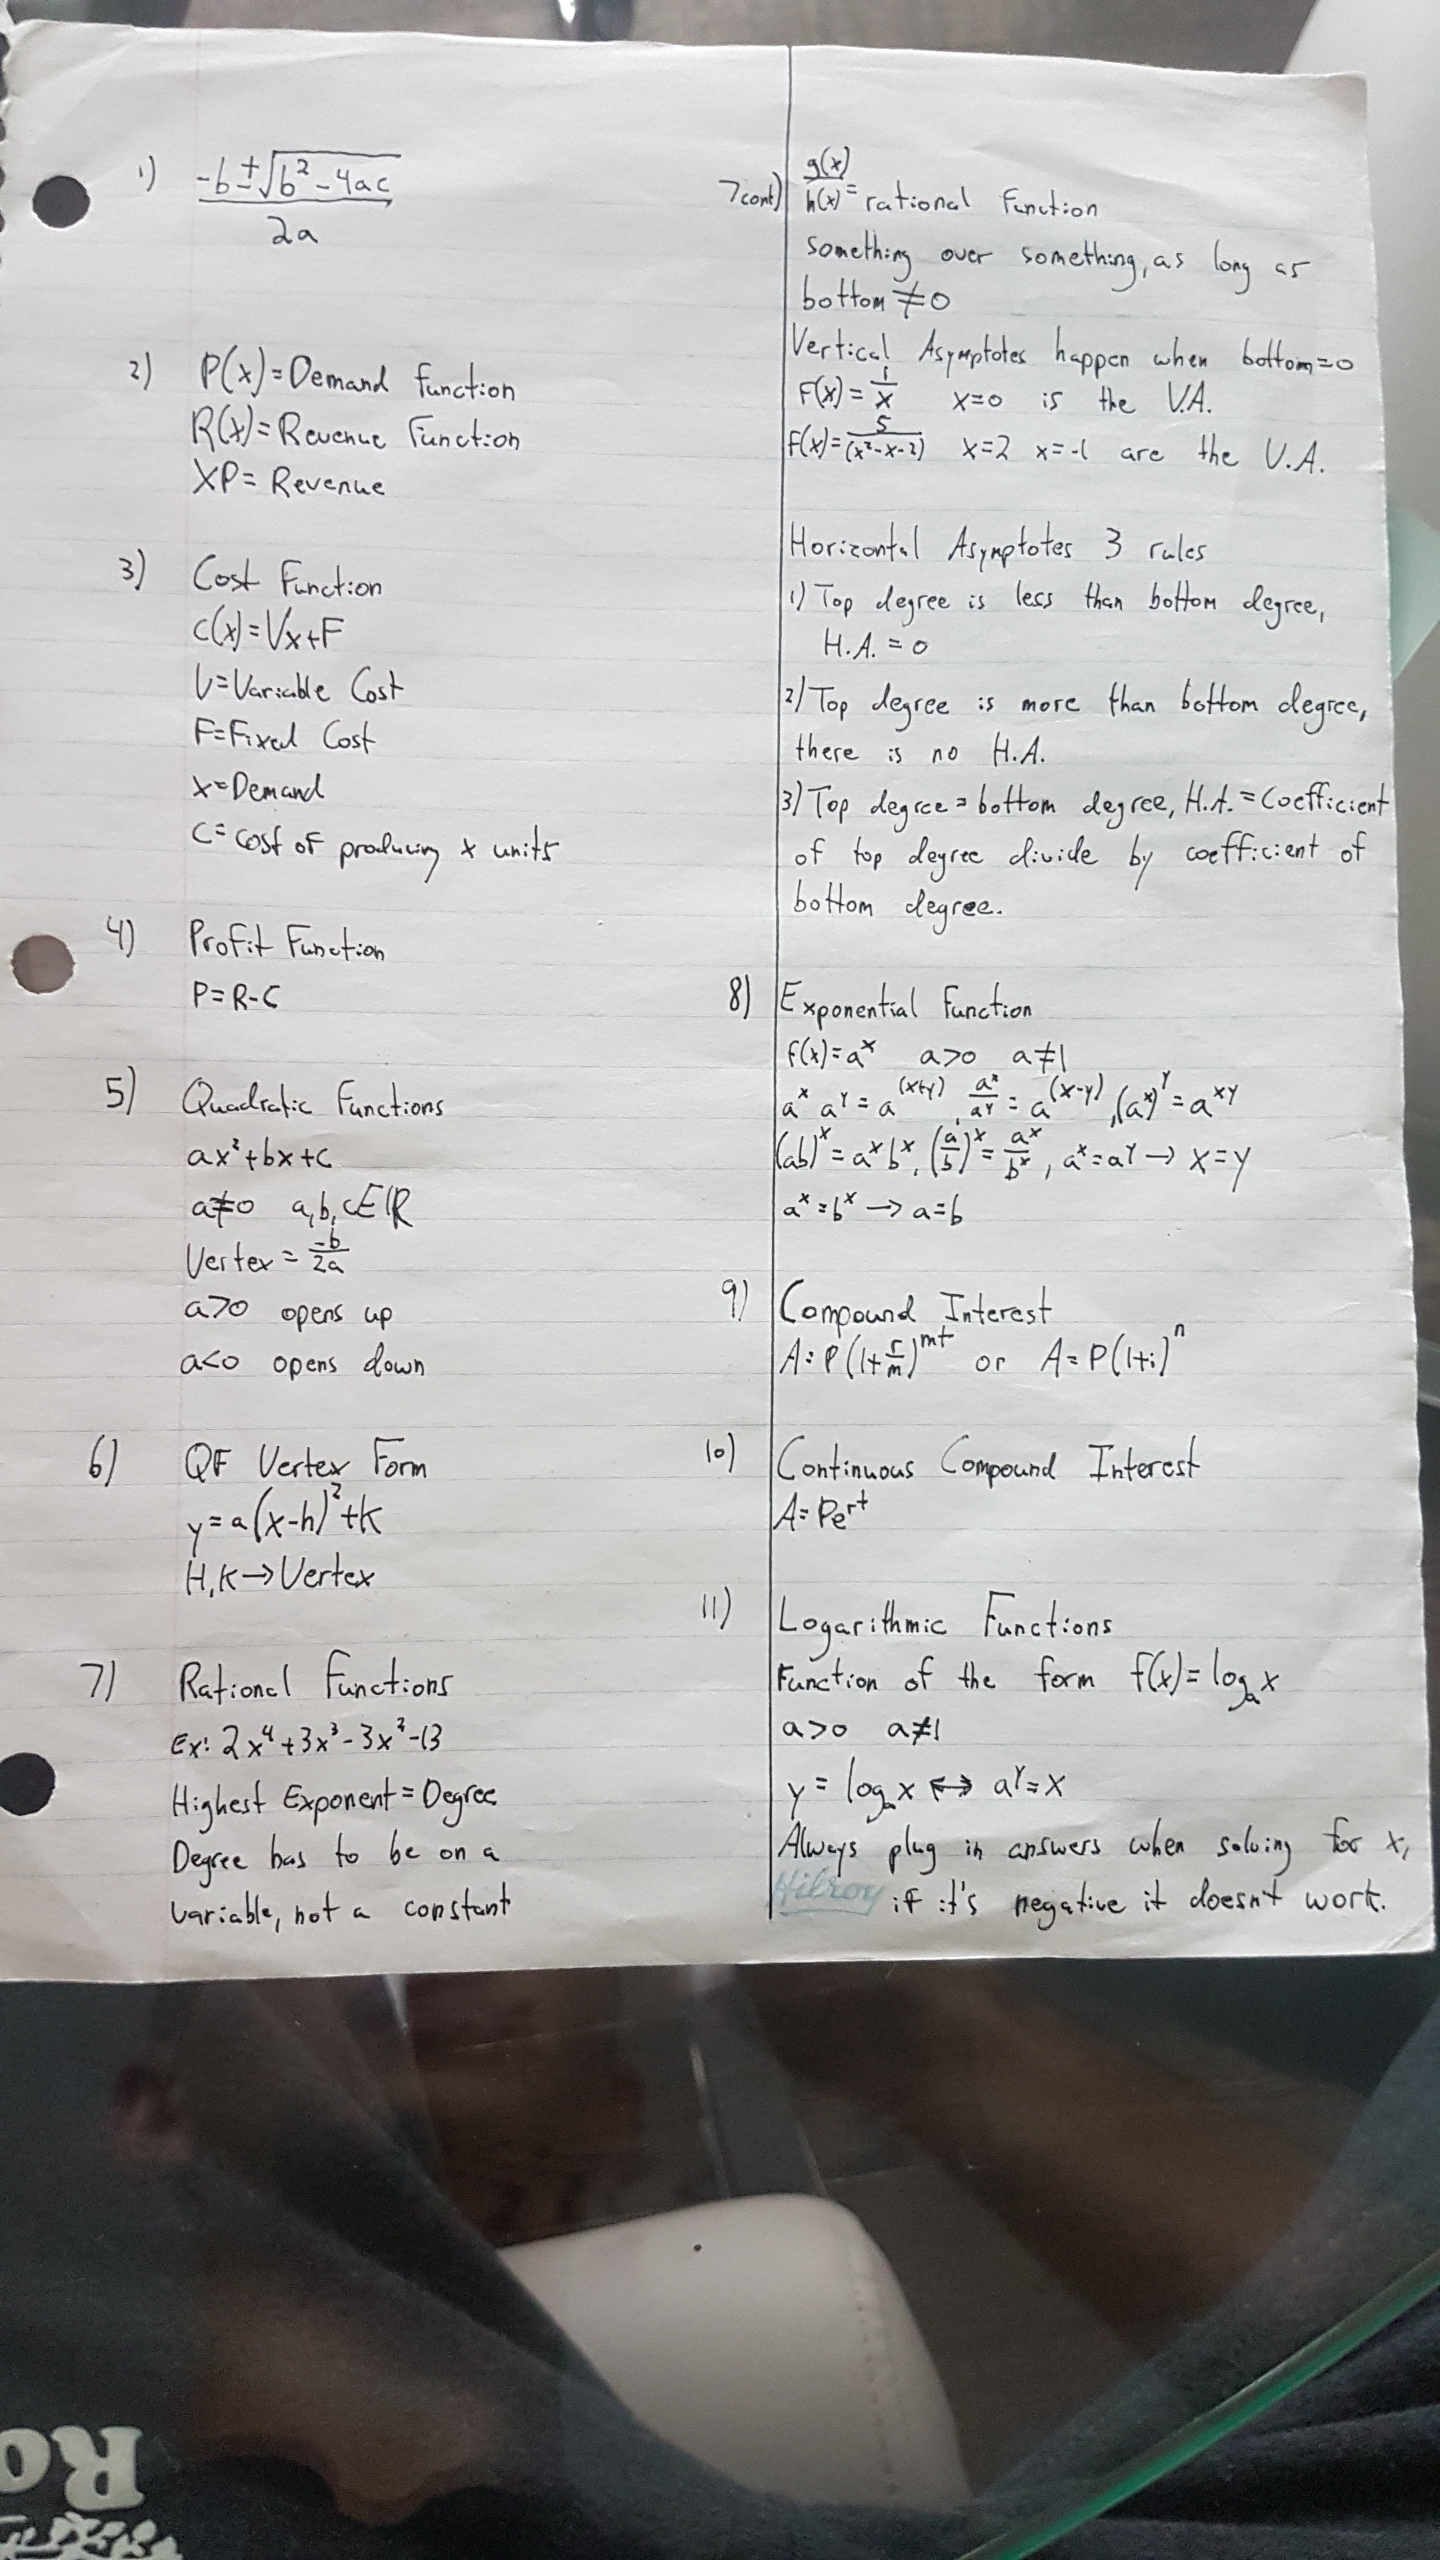 1) -b ± √b² - 4ac
2a
2) P(x) = Demand function
R(x) = Revenue Function
XP = Revenue
3) Cost Function
C(x) = Vx + F
V = Variable Cost
F = Fixed Cost
x = Demand
C = cost of producing x units
4) Profit Function
P = R - C
5) Quadratic Functions
ax² + bx + c
a ≠ 0 a, b, c ∈ ℝ
Vertex = -b/2a
a > 0 opens up
a < 0 opens down
6) QF Vertex Form
y = a(x - h)² + K
H, K → Vertex
7) Rational Functions
Ex: 2x⁴ + 3x³ - 3x² - 13
Highest Exponent = Degree
Degree has to be on a
variable, not a constant
7cont) g(x)/h(x) = rational function
something over something, as long as
bottom ≠ 0
Vertical Asymptotes happen when bottom = 0
F(x) = 1/x x=0 is the V.A.
f(x) = 5/(x²-x-2) x=2 x=-1 are the V.A.
Horizontal Asymptotes 3 rules
1) Top degree is less than bottom degree,
H.A. = 0
2) Top degree is more than bottom degree,
there is no H.A.
3) Top degree = bottom degree, H.A. = Coefficient
of top degree divide by coefficient of
bottom degree.
8) Exponential Function
f(x) = aˣ a>0 a≠1
aˣ aʸ = a^(x+y), aˣ/aʸ = a^(x-y), (aˣ)ʸ = aˣʸ
(ab)ˣ = aˣbˣ, (a/b)ˣ = aˣ/bˣ, aˣ = aʸ → x = y
aˣ = bˣ → a = b
9) Compound Interest
A = P(1 + r/m)^mt or A = P(1+i)ⁿ
10) Continuous Compound Interest
A = Pe^rt
11) Logarithmic Functions
Function of the form f(x) = logₐx
a>0 a≠1
y = logₐx ↔ aʸ = x
Always plug in answers when solving for x,
Hilroy if it's negative it doesn't work.
Ro